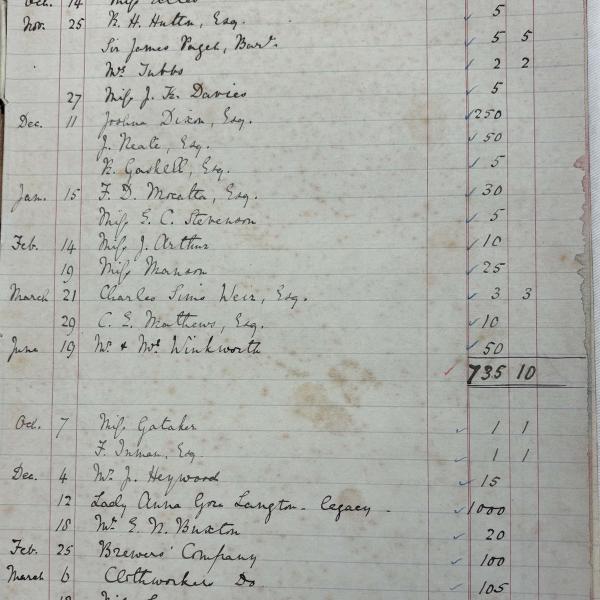 Oct. 14 Miss
Nov. 25 R. H. Hutton, Esq. 5
Sir James Paget, Bart. 5 5
Mrs Tubbs 2 2
27 Miss J. K. Davies 5
Dec. 11 Joshua Dixon, Esq. 250
J. Neate, Esq. 50
R. Gaskell, Esq. 5
Jan. 15 F. D. Mocatta, Esq. 30
Miss E. C. Stevenson 5
Feb. 14 Miss J. Arthur 10
19 Miss Manson 25
March 21 Charles Sims Weir, Esq. 3 3
29 C. E. Mathews, Esq. 10
June 19 Mr & Mrs Winkworth 50
735 10
Oct. 7 Miss Gataker 1 1
F. Inman, Esq. 1 1
Dec. 4 Mr J. Heywood 15
12 Lady Anna Gore Langton - legacy - 1000
18 Mr E. N. Buxton 20
Feb. 25 Brewers' Company 100
March 6 Clothworkers Do 105